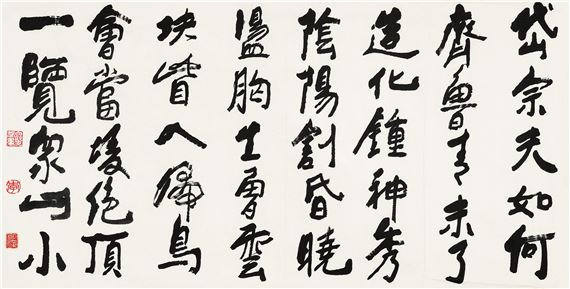 岱宗夫如何
齊魯青未了
造化鍾神秀
陰陽割昏曉
盪胸生曾雲
決眥入歸鳥
會當凌絕頂
一覽眾山小